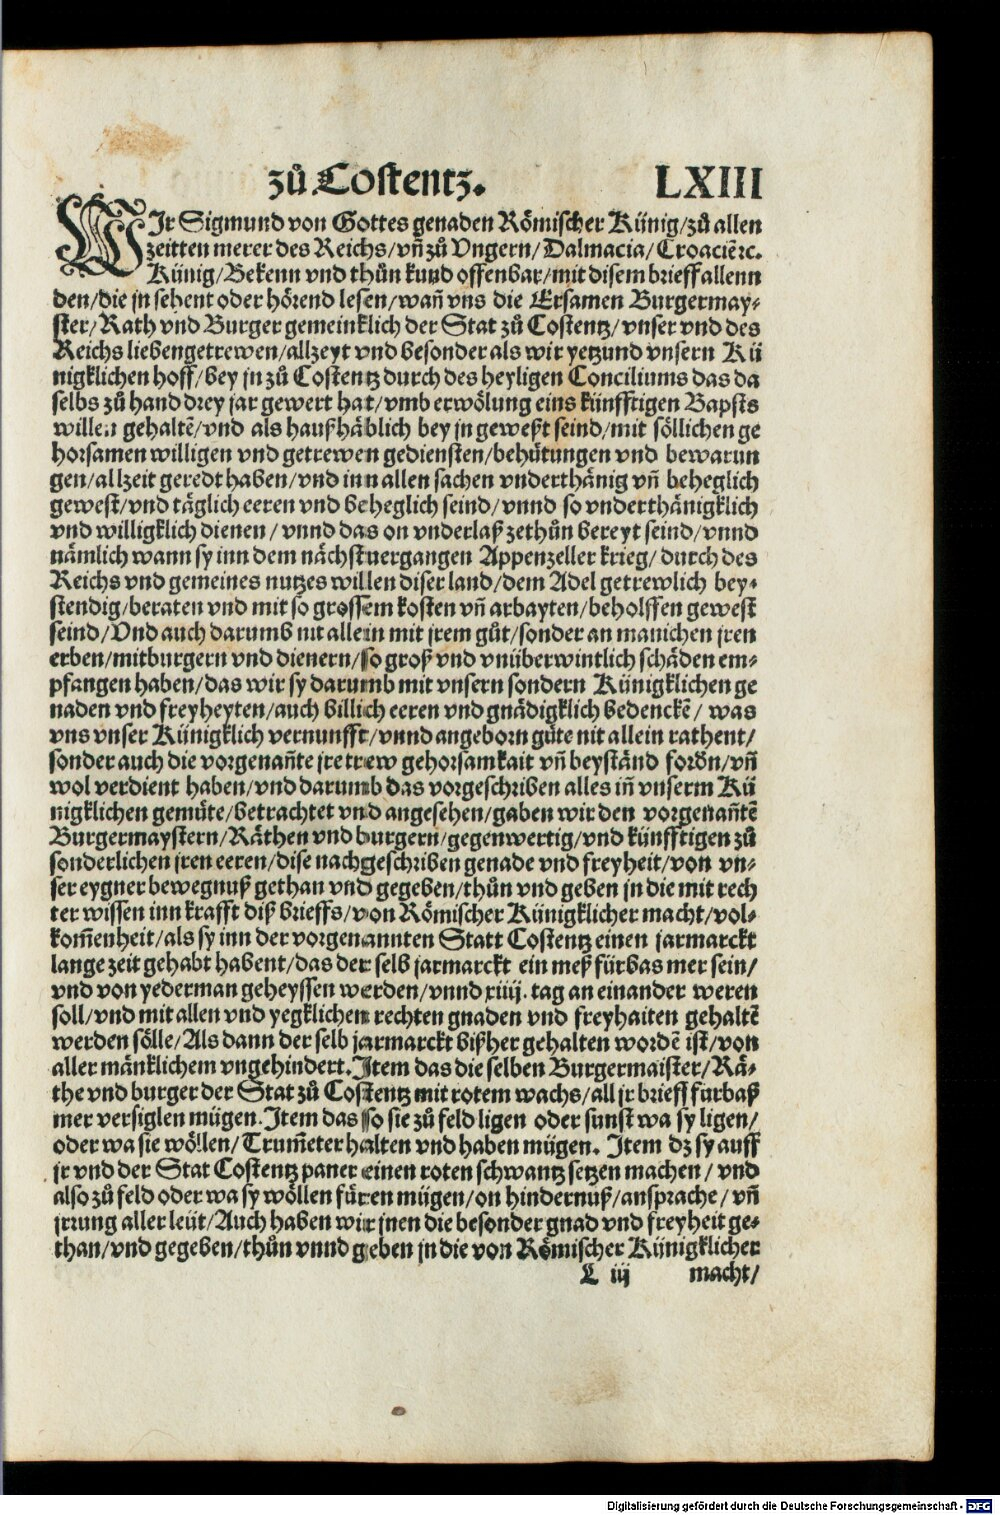 zů Costentz. LXIII
WIr Sigmund von Gottes genaden Römischer Künig/zů allen
zeitten merer des Reichs/vñ zů Vngern/Dalmacia/Croaciē ꝛc.
Künig/Bekenn vnd thůn kund offenbar/mit disem brieff allenn
den/die jn sehent oder hörend lesen/wañ vns die Ersamen Burgermay⸗
ster/Rath vnd Burger gemeinklich der Stat zů Costentz/vnser vnd des
Reichs lieben getrewen/allzeyt vnd besonder als wir yetzund vnsern Kü
nigklichen hoff/bey jn zů Costentz durch des heyligen Conciliums das da
selbs zů hand drey jar gewert hat/vmb erwölung eins künfftigen Bapsts
willen gehaltē/vnd als haußhäblich bey jn geweßt seind/mit söllichen ge
horsamen willigen vnd getrewen gediensten/behůtungen vnd bewarun
gen/allzeit geredt haben/vnd inn allen sachen vnderthänig vñ beheglich
gewest/vnd täglich eeren vnd beheglich seind/vnnd so vnderthänigklich
vnd willigklich dienen/vnnd das on vnderlaß zethůn bereyt seind/vnnd
nämlich wann sy inn dem nächstuergangen Appenzeller krieg/durch des
Reichs vnd gemeines nutzes willen diser land/dem Adel getrewlich bey⸗
stendig/beraten vnd mit so grossem kosten vñ arbayten/beholffen gewest
seind/Vnd auch darumb nit allein mit jrem gůt/sonder an manichen jren
erben/mitburgern vnd dienern/so groß vnd vnüberwintlich schäden em⸗
pfangen haben/das wir sy darumb mit vnsern sondern Künigklichen ge
naden vnd freyheyten/auch billich eeren vnd gnädigklich bedenckē/was
vns vnser Künigklich vernunfft/vnnd angeborn güte nit allein rathent/
sonder auch die vorgenañte jre trew gehorsamkait vñ beyständ fordn/vñ
wol verdient haben/vnd darumb das vorgeschriben alles iñ vnserm Kü
nigklichen gemüte/betrachtet vnd angesehen/gaben wir den vorgenañtē
Burgermaystern/Räthen vnd burgern/gegenwertig/vnd künfftigen zů
sonderlichen jren eeren/dise nachgeschriben genade vnd freyheit/von vn⸗
ser eygner bewegnuß gethan vnd gegeben/thůn vnd geben jn die mit rech
ter wissen inn krafft diß brieffs/von Römischer Künigklicher macht/vol⸗
kom̄enheit/als sy inn der vorgenannten Statt Costentz einen jarmarckt
lange zeit gehabt habent/das der selb jarmarckt ein meß fürbas mer sein/
vnd von yederman geheyssen werden/vnnd xiiij. tag an einander weren
soll/vnd mit allen vnd yegklichen rechten gnaden vnd freyhaiten gehaltē
werden sölle/Als dann der selb jarmarckt bißher gehalten wordē ist/von
aller mänklichem vngehindert. Item das die selben Burgermaister/Rä⸗
the vnd burger der Stat zů Costentz mit rotem wachs/all jr brieff furbaß
mer versiglen mügen. Item das so sie zů feld ligen oder sunst wa sy ligen/
oder wa sie wöllen/Trum̄eter halten vnd haben mügen. Item dz sy auff
jr vnd der Stat Costentz paner einen roten schwantz setzen machen/vnd
also zů feld oder wa sy wöllen füren mügen/on hindernuß/ansprache/vñ
jrrung aller leüt/Auch haben wir jnen die besonder gnad vnd freyheit ge⸗
than/vnd gegeben/thůn vnnd geben jn die von Römischer Künigklicher
L iij macht/
Digitalisierung gefördert durch die Deutsche Forschungsgemeinschaft - DFG